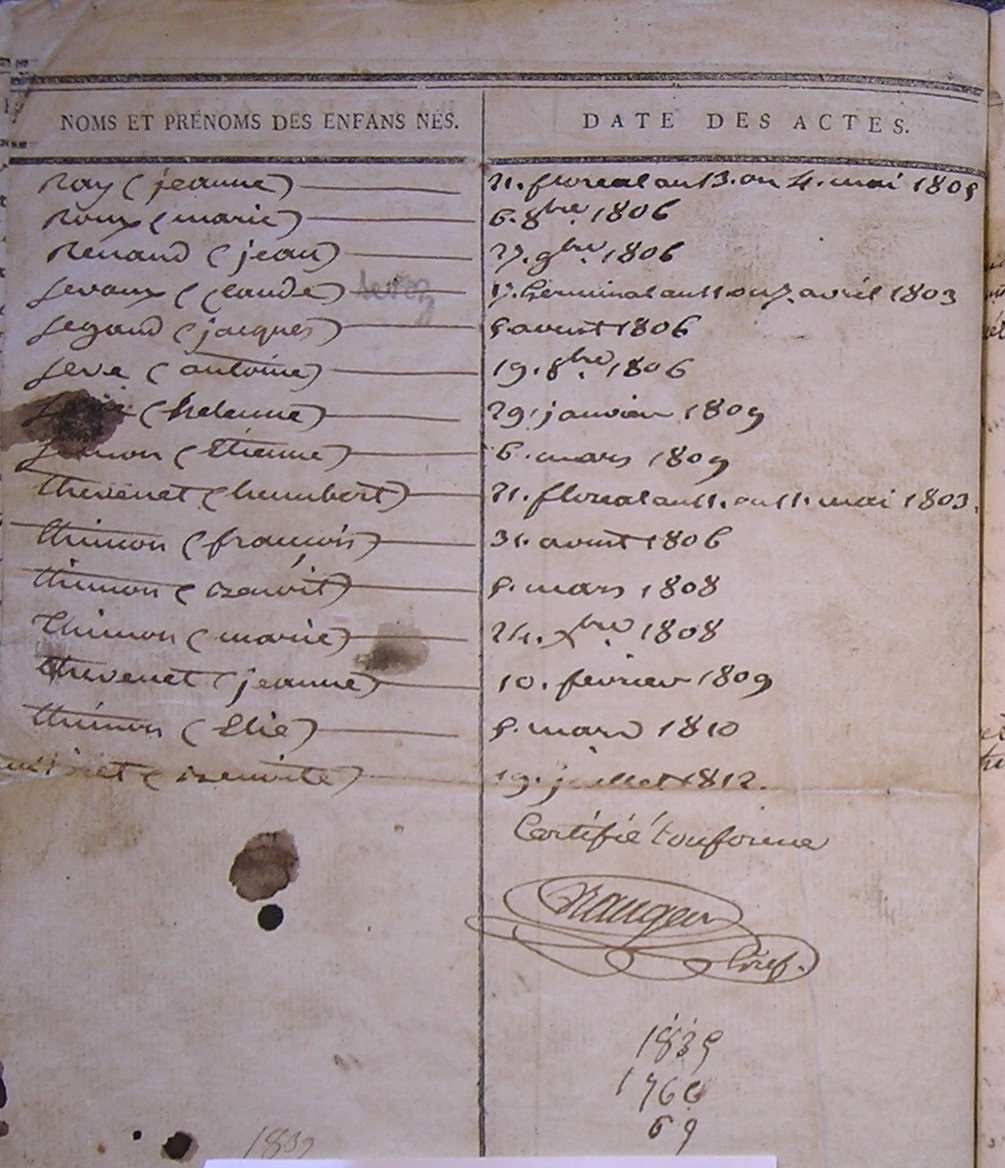 NOMS ET PRÉNOMS DES ENFANS NÉS. DATE DES ACTES.
Ray (jeanne) 21. floreal an 13. ou 4. mai 1805
Roux (marie) 6. 8bre 1806
Renaud (jean) 27. 9bre. 1806
Sevoux (Claude) 17. Germinal an 11. ou 7. avril 1803
Segaud (jacques) 5 aoust 1806
Seve (antoine) 19. 8bre. 1806
(helenne) 29. janvier 1809
Simon (Etienne) 6. mars 1809
thevenet (humbert) 21. floreal an 11. ou 11. mai 1803.
thimon (francois) 31. aoust 1806
thimon (benoit) 5. mars 1808
Thimon (marie) 24. Xbre 1808
thevenet (jeanne) 10. fevrier 1809
thimon (Elie) 5. mars 1810
(benoite) 19. juillet 1812.
Certifié Conforme
Gref.
1839
1760
69
1839